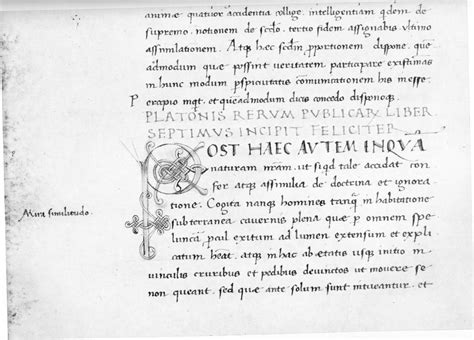 animae quatuor accidentia collige, intelligentiam qdem de
supremo, notionem de scdo, tertio fidem assignabis, ultimo
assimilationem. Atq haec scdm pportionem dispone, que
admodum quae possint veritatem participare existimas
in hunc modum pspicuitatis comunicationem his inesse.
Percipio inqt, et queadmodum dicis concedo disponoq.
PLATONIS RERUM PUBLICAR LIBER
SEPTIMUS INCIPIT FELICITER
POST HAEC AVTEM INQVA
naturam nram, ut siqd tale accidat con
fer atq assimilia de doctrina et ignora
Mira similitudo.
tione. Cogita nanq homines tanq in habitatione
subterranea cavernis plena quae p omnem spe
luncā, pcul exitum ad lumen extensum et expli
catum heat, atq in hac ab aetatis usq initio in
vinculis cruribus et pedibus devinctos ut movere se
non queant, sed quae ante solum sunt intueantur, et